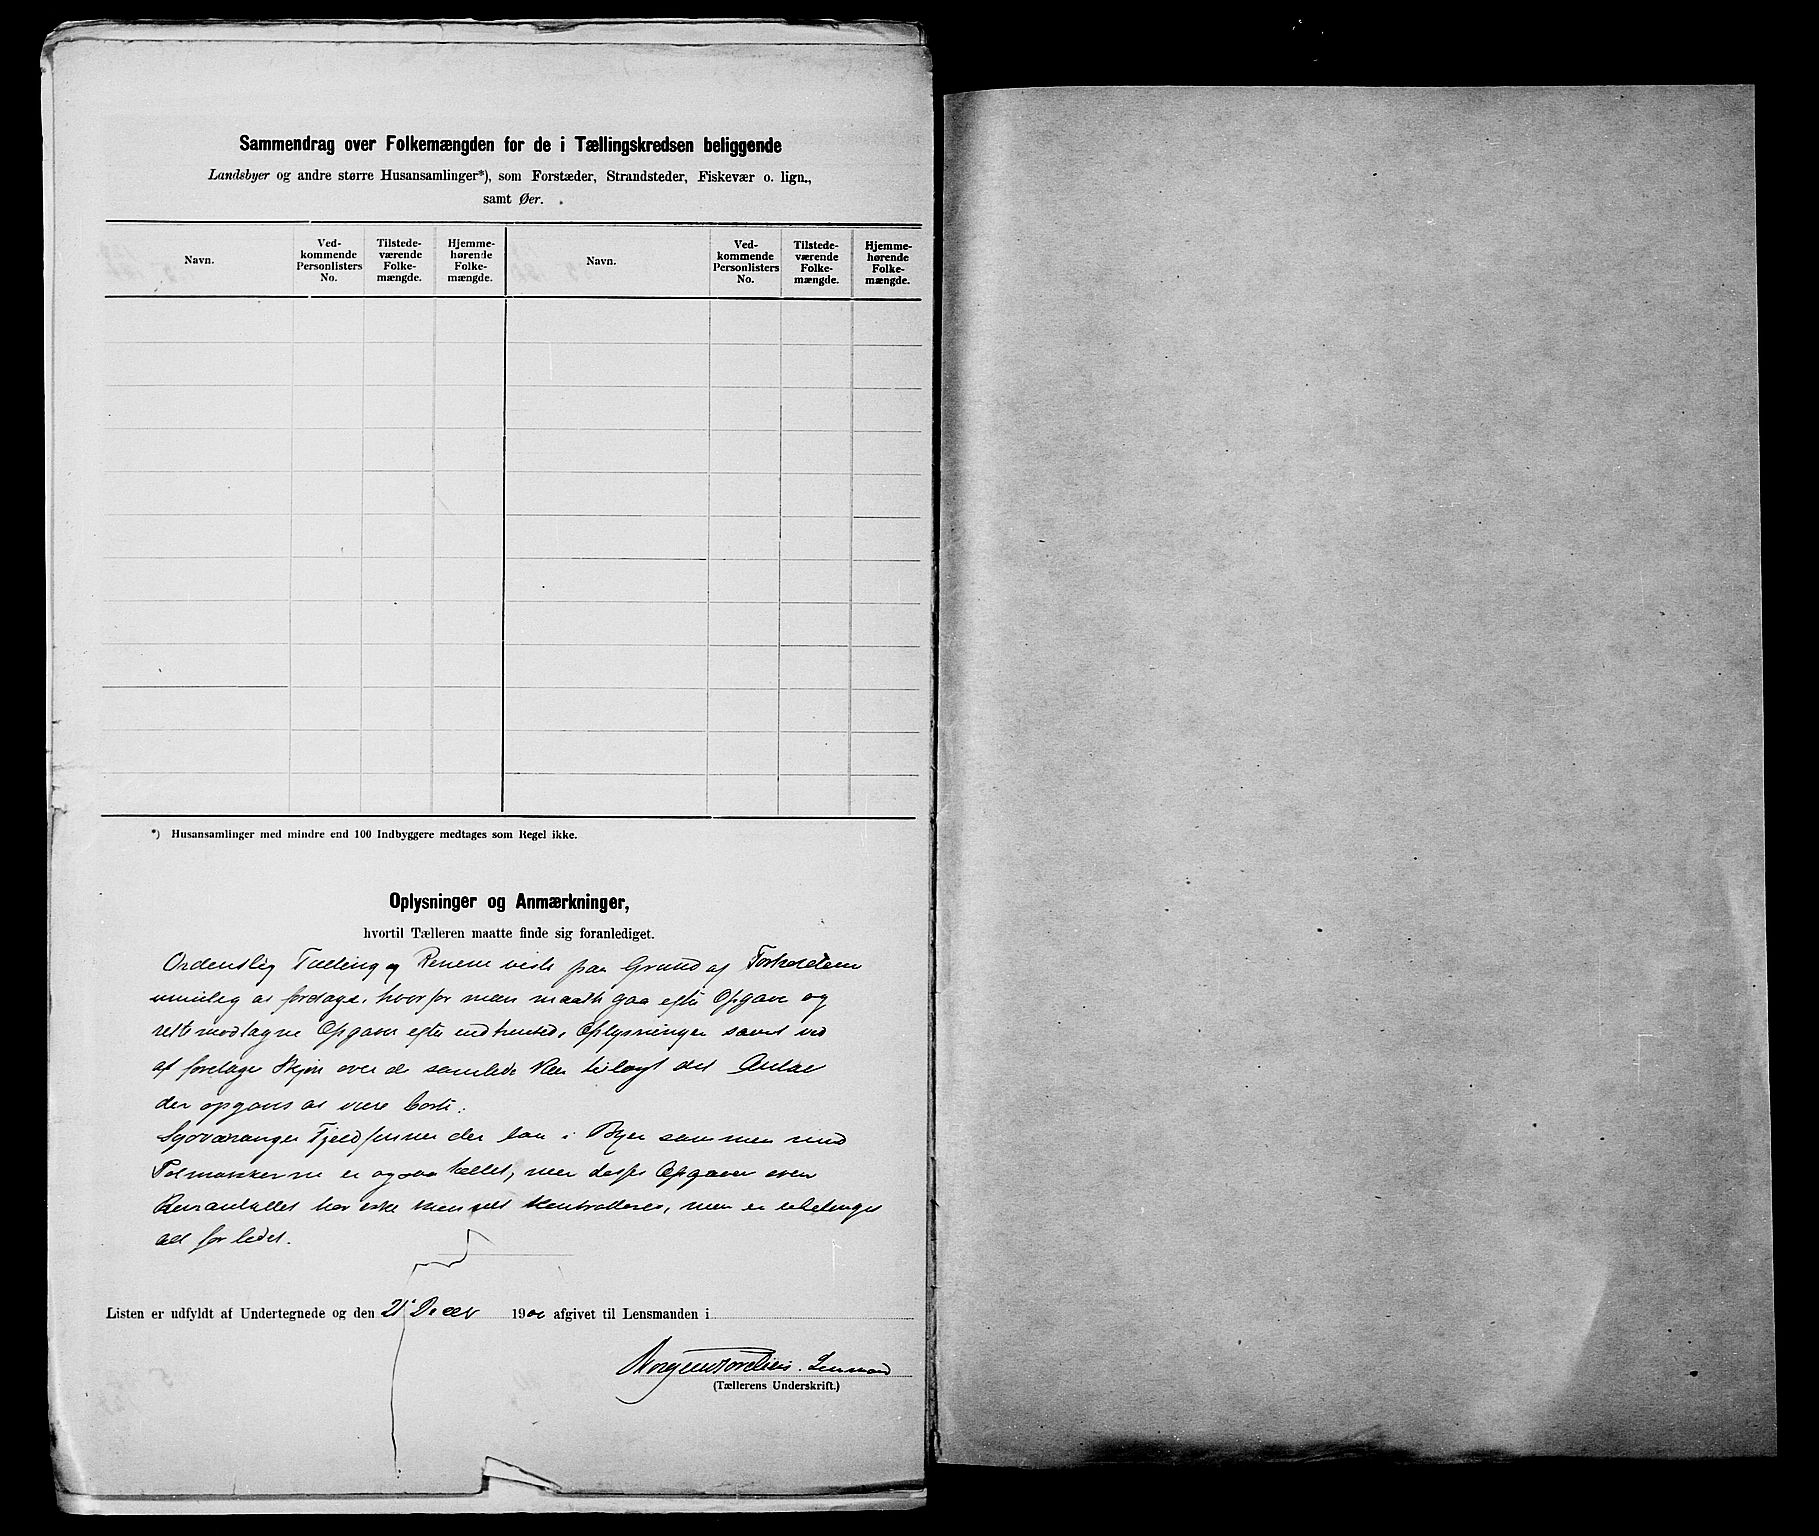 Sammendrag over Folkemængden for de i Tællingskredsen beliggende
Landsbyer og andre større Husansamlinger*), som Forstæder, Strandsteder, Fiskevær o. lign.,
samt Øer.
Navn.
Ved-
kommende
Personlisters
No.
Tilstede-
værende
Folke-
mængde.
Hjemme-
hørende
Folke-
mængde.
Navn.
Ved-
kommende
Personlisters
No.
Tilstede-
værende
Folke-
mængde.
Hjemme-
hørende
Folke-
mængde.
*) Husansamlinger med mindre end 100 Indbyggere medtages som Regel ikke.
Oplysninger og Anmærkninger,
hvortil Tælleren maatte finde sig foranlediget.
Ordentlig Tælling af Renene paa Grund af Forholdene
umulig at foretage, hvorfor man maatte gaa efter Opgave og
modtagne Opgaver efter Oplysninger samt ved
at foretage Skjøn over de samlede Ren tillagt det Antal
der opgaves at være borte.
Sydvaranger Fjeldfinner der laa i Byer sammen med
Polmakkerne er ogsaa tællet, men disses Opgaver over
Renantallet har ikke kunnet kontrolleres, men er
alt for lidet.
Listen er udfyldt af Undertegnede og den 21 Decbr 1900 afgivet til Lensmanden i
Lensmand
(Tællerens Underskrift.)